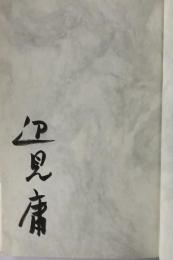 辺見庸